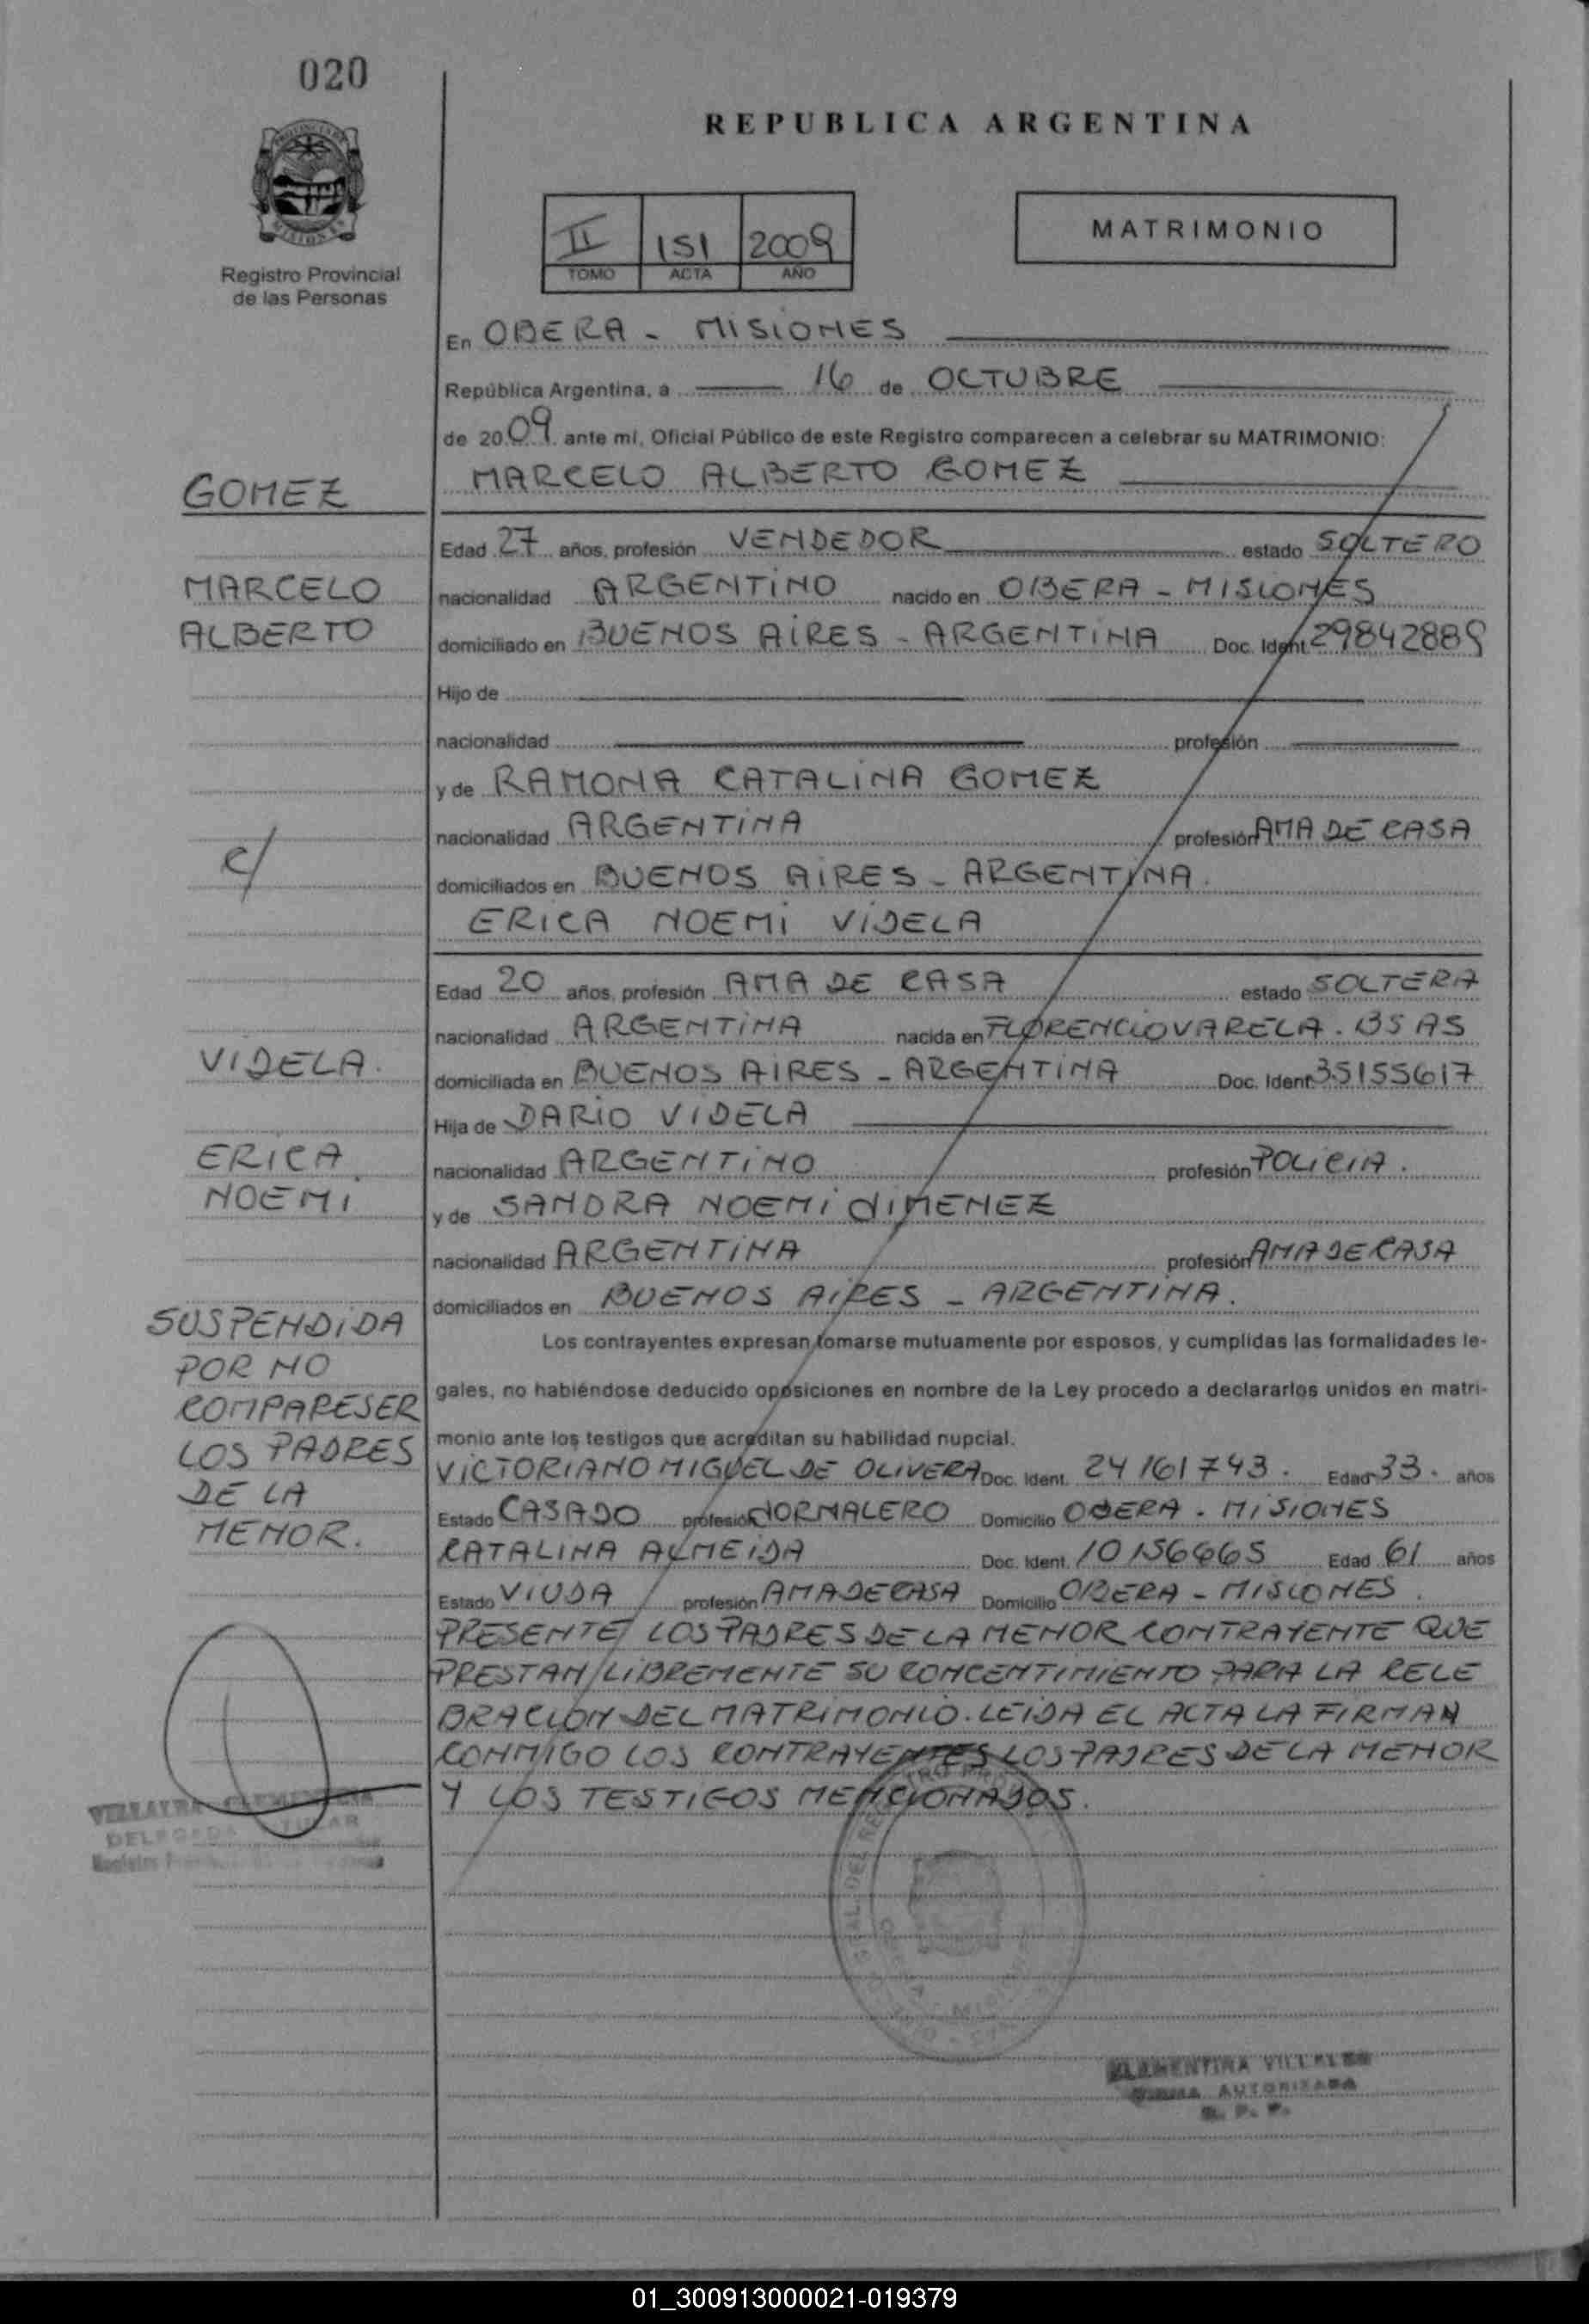 020
REPUBLICA ARGENTINA
Registro Provincial
de las Personas
II 151 2009
TOMO ACTA AÑO
MATRIMONIO
En OBERA - MISIONES
República Argentina, a 16 de OCTUBRE
de 20 09 ante mí, Oficial Público de este Registro comparecen a celebrar su MATRIMONIO:
GOMEZ
MARCELO ALBERTO GOMEZ
Edad 27 años, profesión VENDEDOR estado SOLTERO
MARCELO
nacionalidad ARGENTINO nacido en OBERA - MISIONES
ALBERTO
domiciliado en BUENOS AIRES - ARGENTINA Doc. Ident. 29842889
Hijo de
nacionalidad profesión
y de RAMONA CATALINA GOMEZ
nacionalidad ARGENTINA profesión AMA DE CASA
c/
domiciliados en BUENOS AIRES - ARGENTINA.
ERICA NOEMI VIDELA
Edad 20 años, profesión AMA DE CASA estado SOLTERA
nacionalidad ARGENTINA nacida en FLORENCIO VARELA. BS AS
VIDELA.
domiciliada en BUENOS AIRES - ARGENTINA Doc. Ident 35155617
Hija de DARIO VIDELA
ERICA
nacionalidad ARGENTINO profesión POLICIA.
NOEMI
y de SANDRA NOEMI JIMENEZ
nacionalidad ARGENTINA profesión AMA DE CASA
domiciliados en BUENOS AIRES - ARGENTINA.
SUSPENDIDA
POR NO
COMPARESER
LOS PADRES
DE LA
MENOR.
Los contrayentes expresan tomarse mutuamente por esposos, y cumplidas las formalidades le-
gales, no habiéndose deducido oposiciones en nombre de la Ley procedo a declararlos unidos en matri-
monio ante los testigos que acreditan su habilidad nupcial.
VICTORIANO MIGUEL DE OLIVERA Doc. Ident. 24161743. Edad 33. años
Estado CASADO profesión JORNALERO Domicilio OBERA - MISIONES
CATALINA ALMEIDA Doc. Ident. 10156665 Edad 61 años
Estado VIUDA profesión AMA DE CASA Domicilio OBERA - MISIONES.
PRESENTE LOS PADRES DE LA MENOR CONTRAYENTE QUE
PRESTAN LIBREMENTE SU CONCENTIMIENTO PARA LA CELE
BRACION DEL MATRIMONIO. LEIDA EL ACTA LA FIRMAN
CONMIGO LOS CONTRAYENTES LOS PADRES DE LA MENOR
Y LOS TESTIGOS MENCIONADOS.
VILLALBA CLEMENTINA
DELEGADA TITULAR
CLEMENTINA VILLALBA
FIRMA AUTORIZADA
R. P. P.
01_300913000021-019379